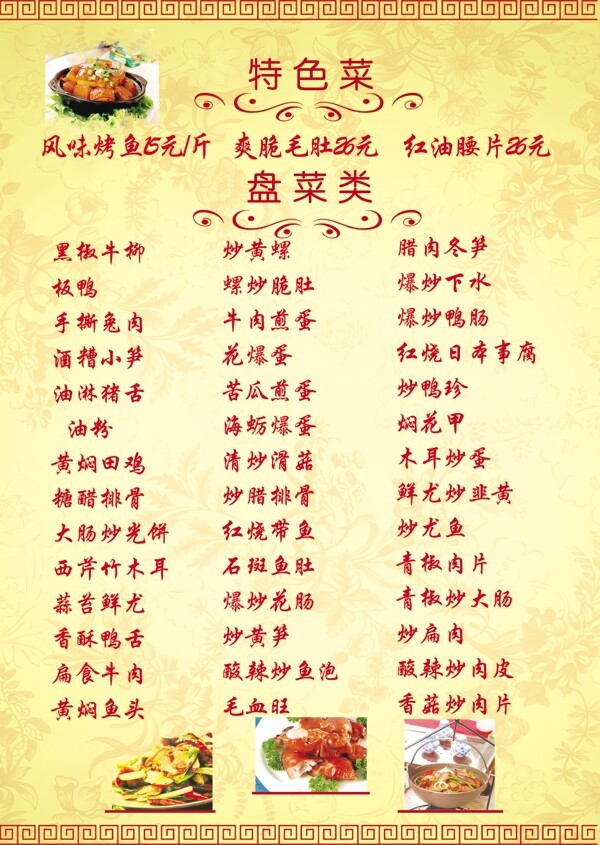 特色菜
风味烤鱼15元/斤 爽脆毛肚26元 红油腰片26元
盘菜类
黑椒牛柳 炒黄螺 腊肉冬笋
板鸭 螺炒脆肚 爆炒下水
手撕兔肉 牛肉煎蛋 爆炒鸭肠
酒糟小笋 花爆蛋 红烧日本事腐
油淋猪舌 苦瓜煎蛋 炒鸭珍
油粉 海蛎爆蛋 焖花甲
黄焖田鸡 清炒滑菇 木耳炒蛋
糖醋排骨 炒腊排骨 鲜尤炒韭黄
大肠炒光饼 红烧带鱼 炒尤鱼
西芹竹木耳 石斑鱼肚 青椒肉片
蒜苔鲜尤 爆炒花肠 青椒炒大肠
香酥鸭舌 炒黄笋 炒扁肉
扁食牛肉 酸辣炒鱼泡 酸辣炒肉皮
黄焖鱼头 毛血旺 香菇炒肉片